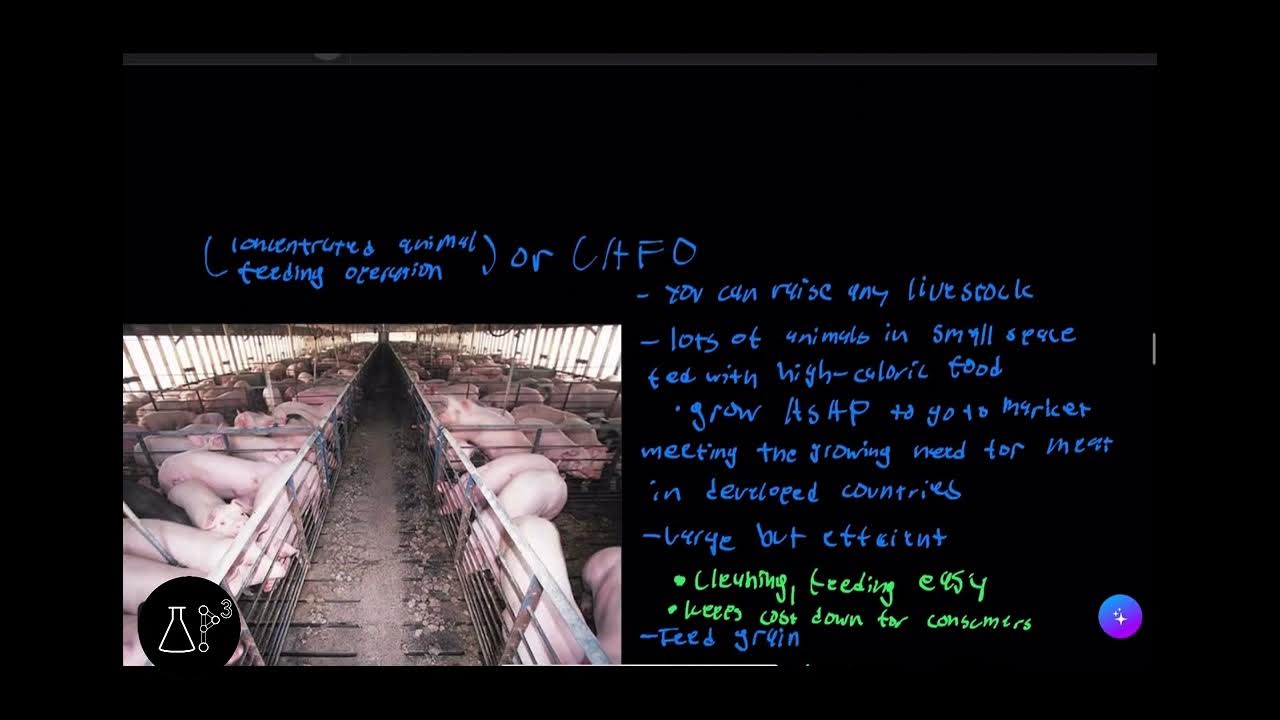 (concentrated animal
feeding operation) or CAFO
- You can raise any livestock
- lots of animals in small space
fed with high-caloric food
• grow ASAP to go to market
meeting the growing need for meat
in developed countries
- Large but efficient
• Cleaning, feeding easy
• keeps cost down for consumers
- Feed grain
3